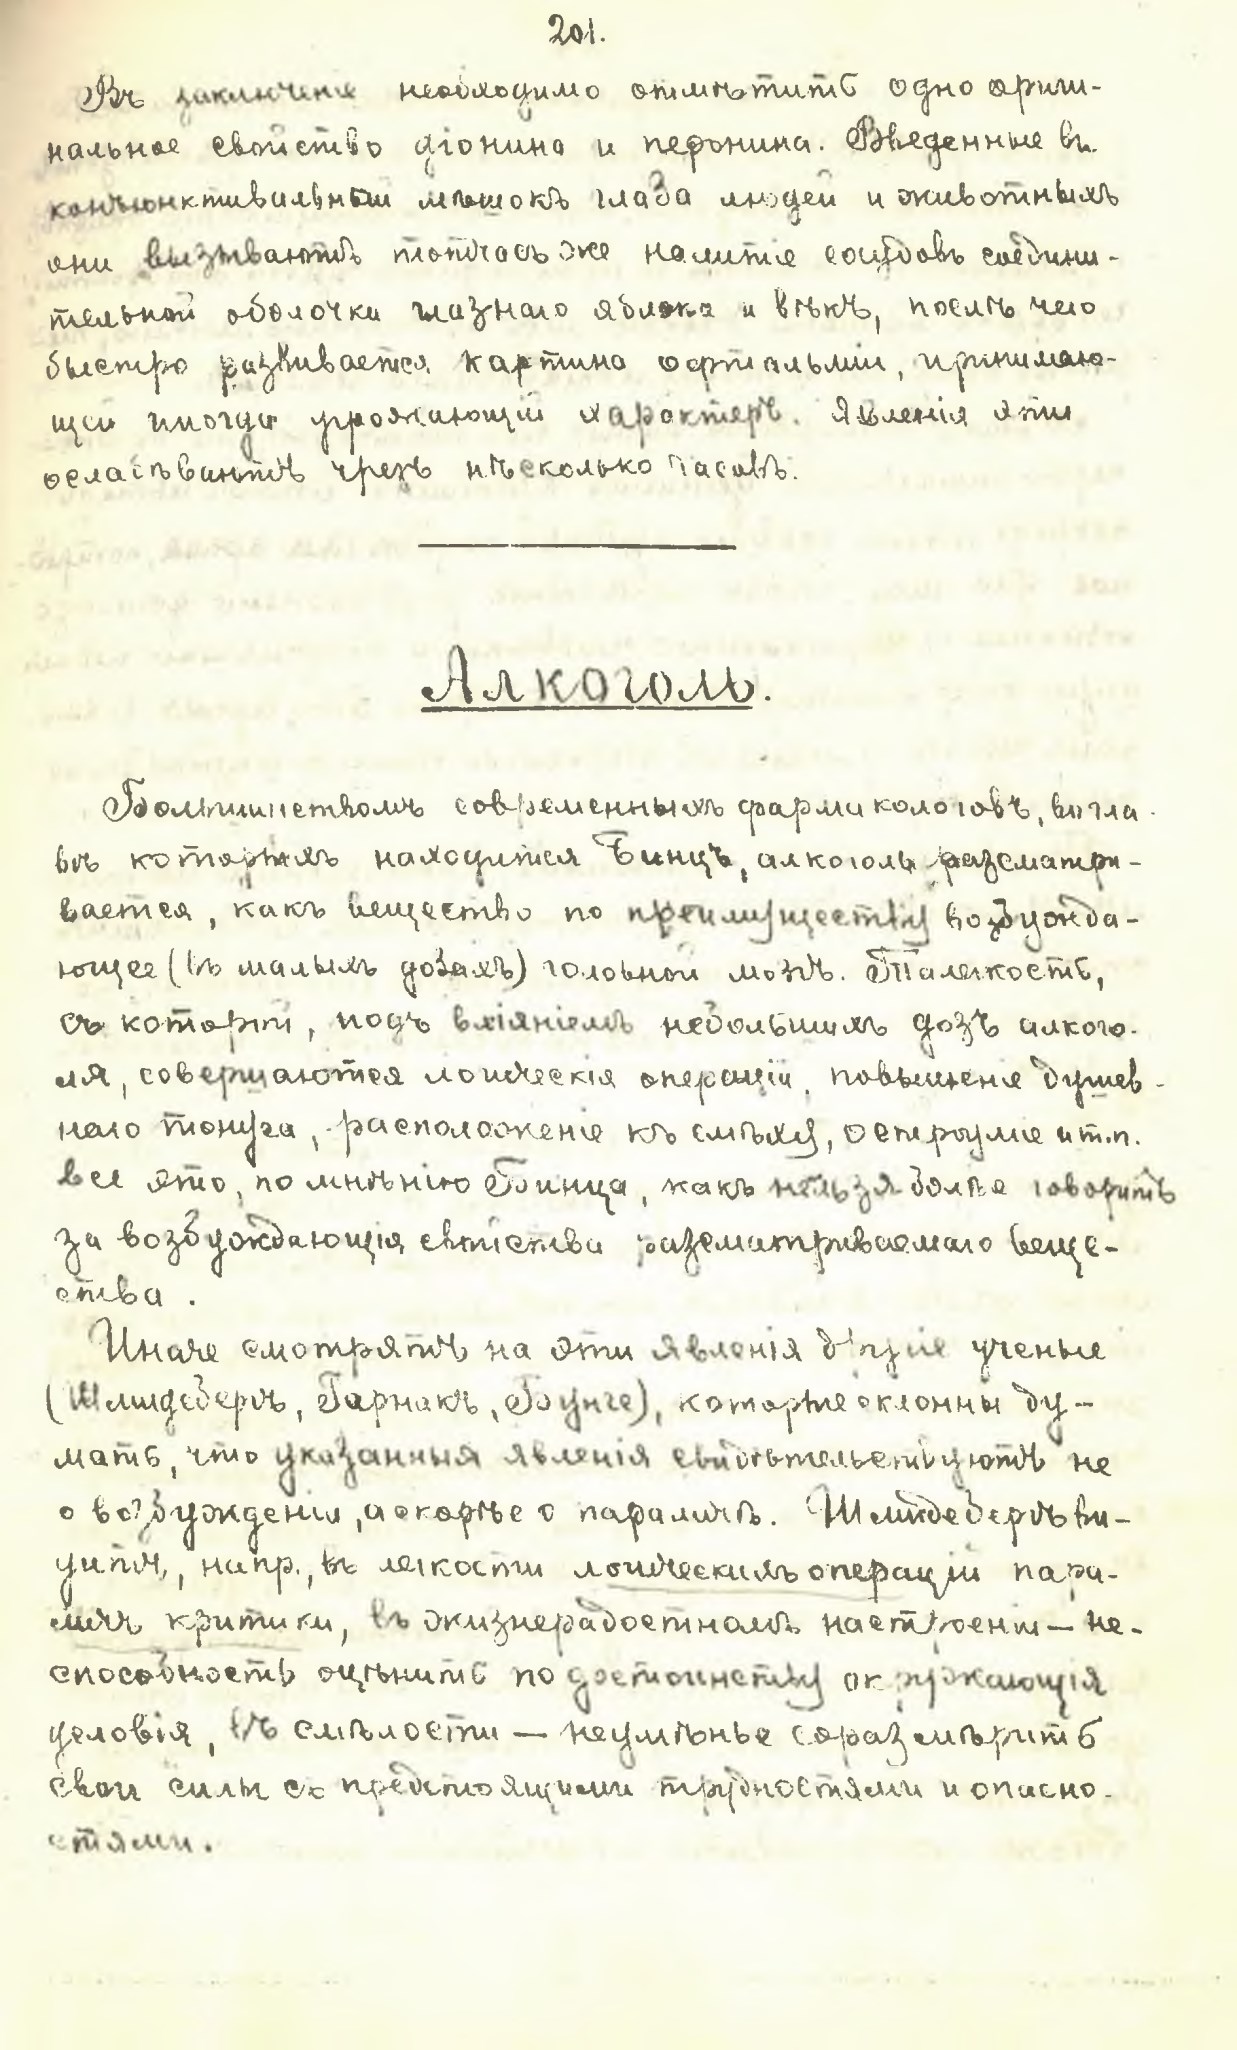 201.
Въ заключеніе необходимо отмѣтить одно ориги-
нальное свойство діонина и перонина. Введенные въ
конъюнктивальный мѣшокъ глаза людей и животныхъ
они вызываютъ тотчасъ же налитіе сосудовъ соедини-
тельной оболочки глазнаго яблока и вѣкъ, послѣ чего
быстро развивается картина офтальміи, принимаю-
щей иногда угрожающій характеръ. Явленія эти
ослабѣваютъ чрезъ нѣсколько часовъ.
Алкоголь.
Большинствомъ современныхъ фармакологовъ, во гла-
вѣ которыхъ находится Бинцъ, алкоголь разсматри-
вается, какъ вещество по преимуществу возбужда-
ющее (въ малыхъ дозахъ) головной мозгъ. Та легкость,
съ которой, подъ вліяніемъ небольшихъ дозъ алкого-
ля, совершаются логическія операціи, повышеніе душев-
наго тонуса, расположеніе къ смѣху, остроуміе и т.п.
все это, по мнѣнію Бинца, какъ нельзя болѣе говоритъ
за возбуждающія свойства разсматриваемаго веще-
ства.
Иначе смотрятъ на эти явленія другіе ученые
(Шмидебергъ, Гарнакъ, Бунге), которые склонны ду-
мать, что указанныя явленія свидѣтельствуютъ не
о возбужденіи, а скорѣе о параличѣ. Шмидебергъ ви-
дитъ, напр., въ легкости логическихъ операцій пара-
личъ критики, въ жизнерадостномъ настроеніи — не-
способность оцѣнить по достоинству окружающія
условія, въ смѣлости — неумѣнье соразмѣрить
свои силы съ предстоящими трудностями и опасно-
стями.